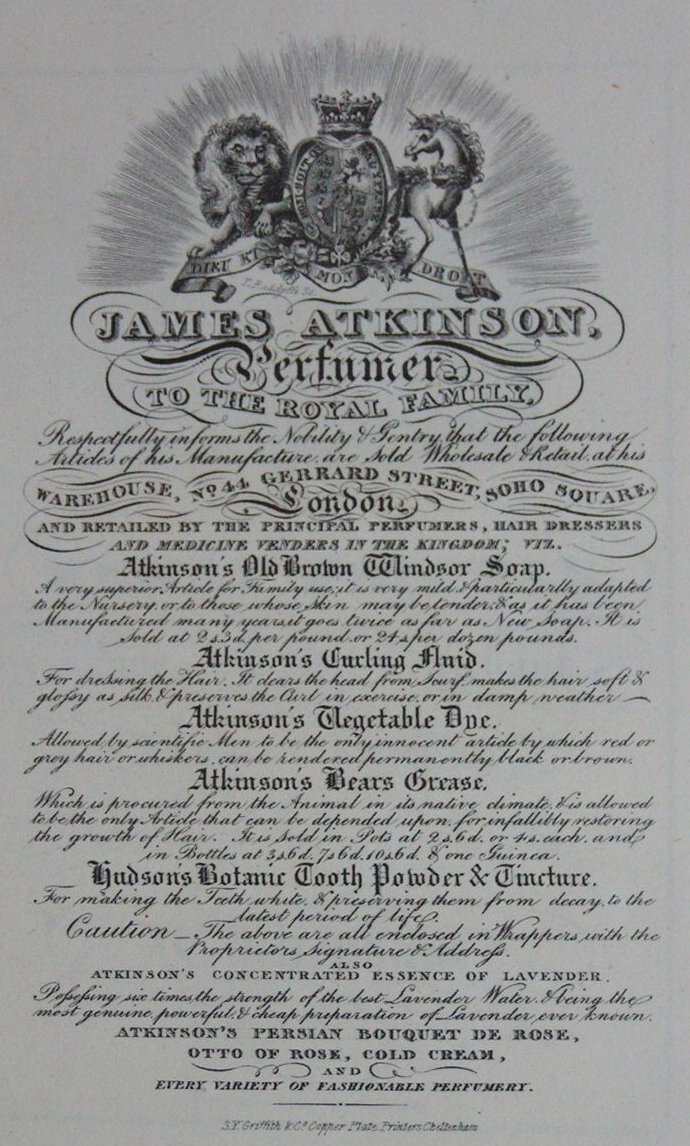 HONI SOIT QUI MAL Y PENSE
DIEU ET MON DROIT
JAMES ATKINSON,
Perfumer
TO THE ROYAL FAMILY,
Respectfully informs the Nobility & Gentry, that the following
Articles of his Manufacture are Sold Wholesale & Retail, at his
WAREHOUSE, No. 44 GERRARD STREET, SOHO SQUARE,
London,
AND RETAILED BY THE PRINCIPAL PERFUMERS, HAIR DRESSERS
AND MEDICINE VENDERS IN THE KINGDOM; VIZ.
Atkinson's Old Brown Windsor Soap.
A very superior Article for Family use; it is very mild & particularly adapted
to the Nursery, or to those whose Skin may be tender; & as it has been
Manufactured many years, it goes twice as far as New Soap. It is
Sold at 2s3d. per pound, or 24s per dozen pounds.
Atkinson's Curling Fluid.
For dressing the Hair. It clears the head from Scurf, makes the hair soft &
glossy as silk & preserves the Curl in exercise, or in damp weather
Atkinson's Vegetable Dye.
Allowed by scientific Men to be the only innocent article by which red or
grey hair or whiskers, can be rendered permanently black or brown.
Atkinson's Bears Grease.
Which is procured from the Animal in its native climate, & is allowed
to be the only Article that can be depended upon, for infallibly restoring
the growth of Hair. It is Sold in Pots at 2s6d. or 4s. each, and
in Bottles at 3s6d. 7s6d. 10s6d. & one Guinea.
Hudson's Botanic Tooth Powder & Tincture.
For making the Teeth white, & preserving them from decay, to the
latest period of life.
Caution — The above are all enclosed in Wrappers, with the
Proprietors Signature & Address.
ALSO
ATKINSON'S CONCENTRATED ESSENCE OF LAVENDER.
Possessing six times the strength of the best Lavender Water, & being the
most genuine, powerful, & cheap preparation of Lavender ever known.
ATKINSON'S PERSIAN BOUQUET DE ROSE,
OTTO OF ROSE, COLD CREAM,
AND
EVERY VARIETY OF FASHIONABLE PERFUMERY.
S.Y. Griffith & Co. Copper Plate Printers Cheltenham